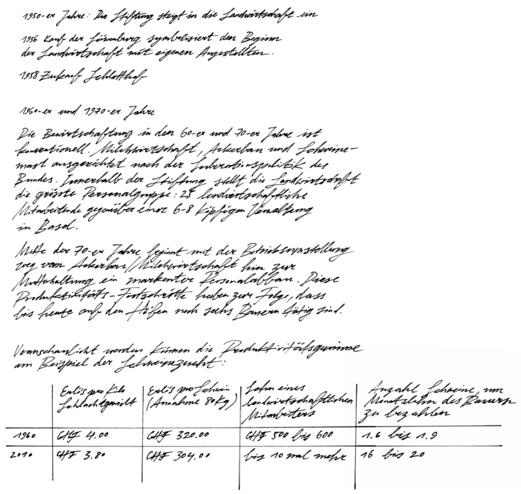 1950-er Jahre: Die Stiftung steigt in die Landwirtschaft ein
1956 Kauf der Löwenburg symbolisiert den Beginn
der Landwirtschaft mit eigenen Angestellten.
1958 Zukauf Schlatthof
1960-er und 1970-er Jahre
Die Bewirtschaftung in den 60-er und 70-er Jahre ist
konventionell. Milchwirtschaft, Ackerbau und Schweine-
mast ausgerichtet nach der Subventionspolitik des
Bundes. Innerhalb der Stiftung stellt die Landwirtschaft
die grösste Personalgruppe: landwirtschaftliche
Mitarbeitende gegenüber einer 6-8 köpfigen Verwaltung
in Basel.
Mitte der 70-er Jahre beginnt mit der Betriebsumstellung
weg vom Ackerbau/Milchwirtschaft hin zur
Mutterkuhhaltung ein markanter Personalabbau. Diese
Produktivitäts-Fortschritte haben zur Folge, dass
bis heute auf den Höfen noch sechs Bauern tätig sind.
Veranschaulicht werden können die Produktivitätsgewinne
am Beispiel der Schweinezucht:
Erlös pro Kilo Erlös pro Schwein Lohn eines Anzahl Schweine, um
Schlachtgewicht (Annahme 80Kg) landwirtschaftlichen Monatslohn des Bauern
Mitarbeiters zu bezahlen
1960 CHF 4.00 CHF 320.00 CHF 500 bis 600 1.6 bis 1.9
2010 CHF 3.80 CHF 304.00 bis 10 mal mehr 16 bis 20